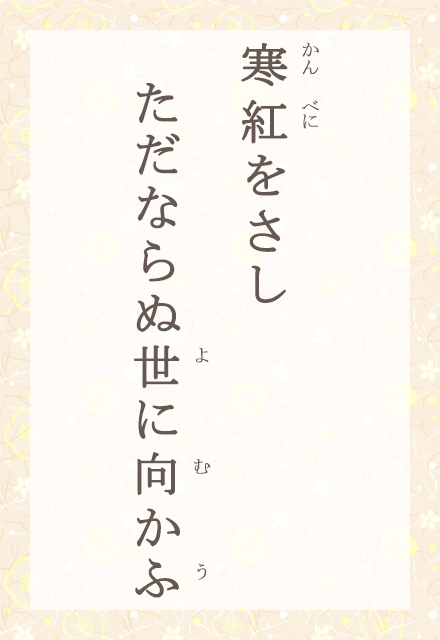 寒紅をさし
かんべに
ただならぬ世に向かふ
よむう